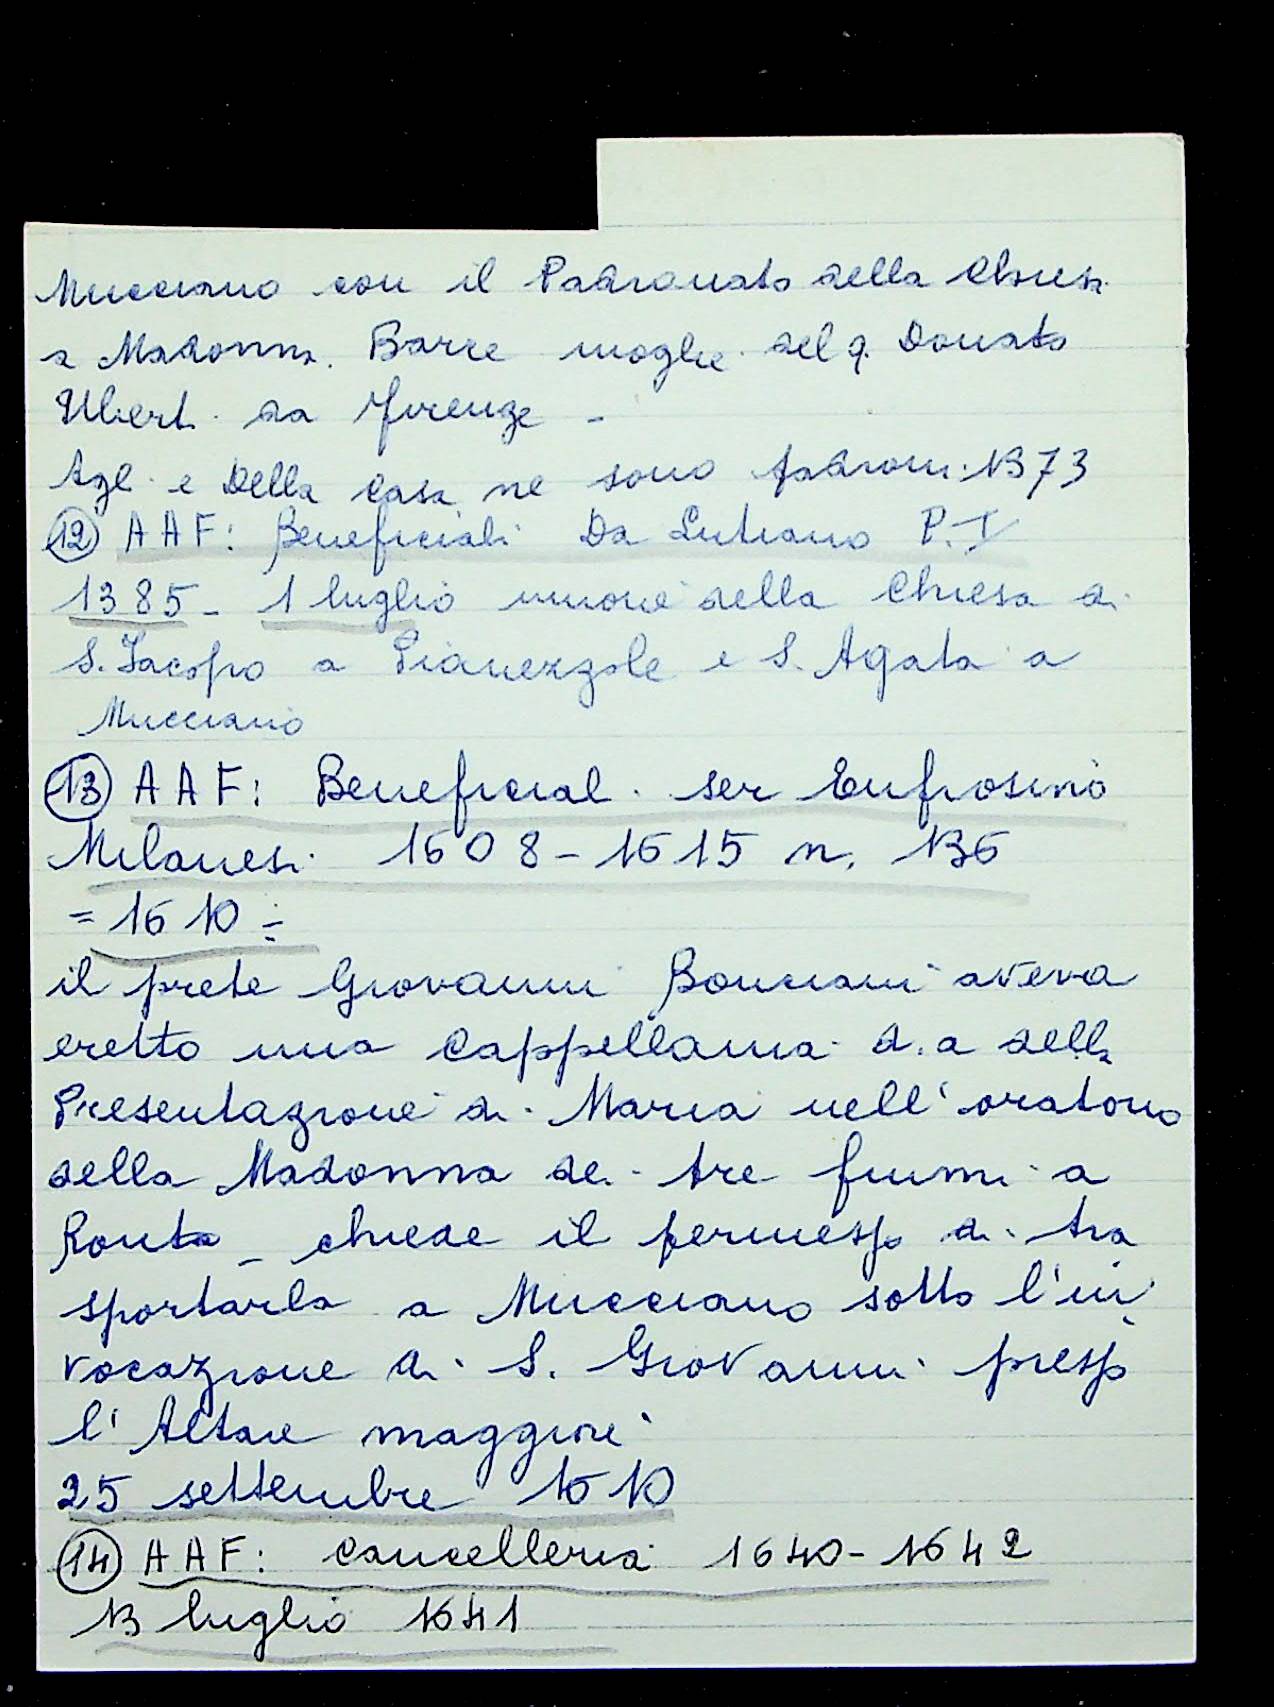 Mucciano con il Padronato della Chiesa
a Madonna Barre moglie del q. Donato
Uberti da Firenze -
Agl. e Della Casa ne sono padroni: 1373
(12) AAF: Beneficiali Da Lutiano P. I
1385 - 1 luglio unione della Chiesa di
S. Jacopo a Pianezzole e S. Agata a
Mucciano
(13) AAF: Beneficiali ser Eufrosino
Milanesi 1608-1615 n. 136
= 1610 =
il prete Giovanni Bonciani aveva
eretto una Cappellania d.a della
Presentazione di Maria nell'oratorio
della Madonna dei tre fiumi a
Ronta - chiede il permesso di tra
sportarla a Mucciano sotto l'in
vocazione di S. Giovanni presso
l'Altare maggiore
25 settembre 1610
(14) AAF: Cancelleria 1640-1642
13 luglio 1641